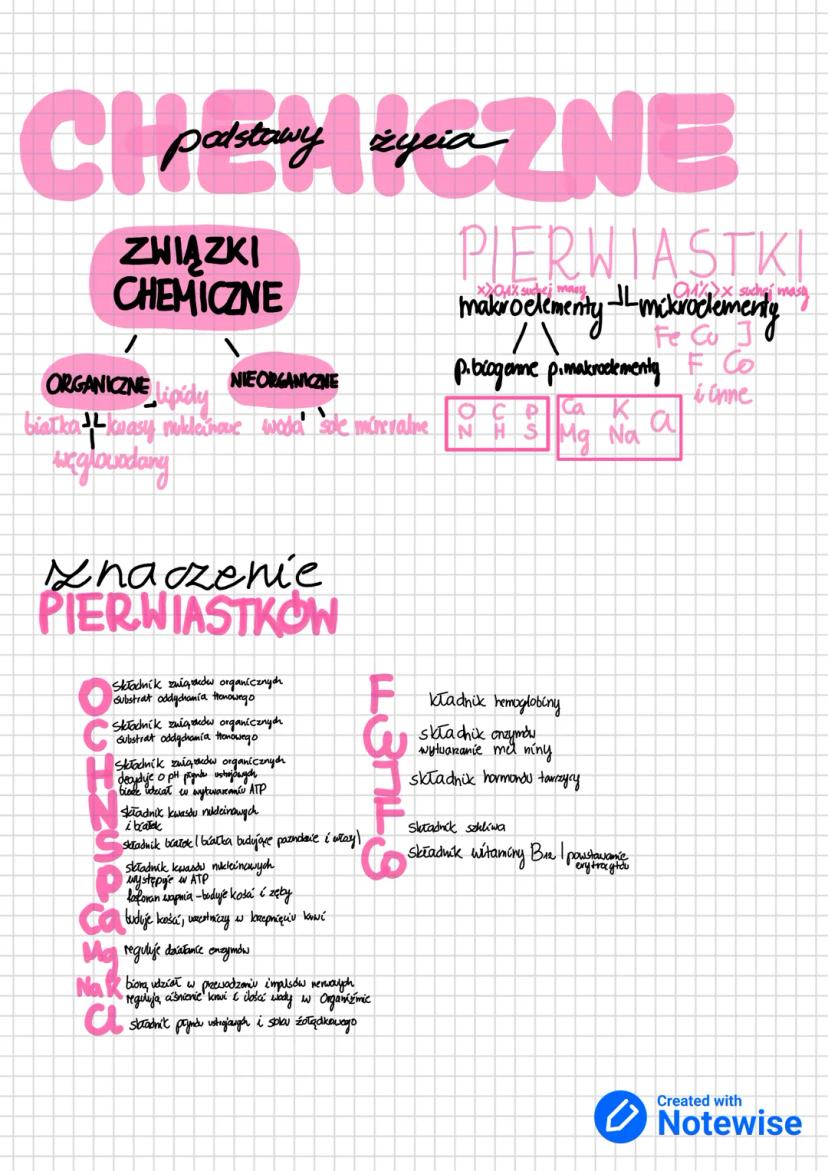 CHEMICZNE
podstawy życia
ZWIĄZKI
CHEMICZNE
ORGANICZNE
NIEORGANICZNE
lipidy
białka kwasy nukleinowe
węglowodany
woda sole mineralne
PIERWIASTKI
x≥0,1% suchej masy
0,1%>x suchej masy
makroelementy
mikroelementy
p. biogenne p. makroelementy
O C P
N H S
Ca K Cl
Mg Na
Fe Cu J
F Co
i inne
znaczenie
PIERWIASTKÓW
O składnik związków organicznych
substrat oddychania tlenowego
C składnik związków organicznych
substrat oddychania tlenowego
H składnik związków organicznych
decyduje o pH płynów ustrojowych
bierze udział w wytwarzaniu ATP
N składnik kwasów nukleinowych
i białek
S składnik białek (białka budujące paznokcie i włosy)
P składnik kwasów nukleinowych
występuje w ATP
fosforan wapnia - buduje kości i zęby
Ca buduje kości, uczestniczy w krzepnięciu krwi
Mg reguluje działanie enzymów
Na K biorą udział w przewodzeniu impulsów nerwowych
regulują ciśnienie krwi i ilości wody w organiźmie
Cl składnik płynów ustrojowych i soku żołądkowego
F kładnik hemoglobiny
składnik enzymów
wytwarzanie mel niny
składnik hormonów tarczycy
F składnik szkliwa
składnik witaminy B12 (powstawanie
erytrocytów
Created with
Notewise